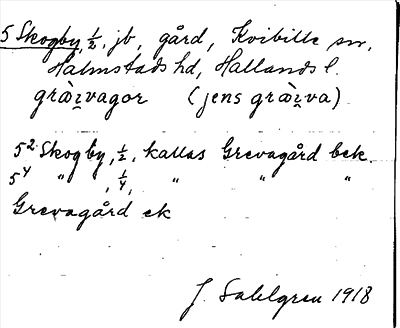 5 Skogby, 1/2, jb, gård, Kvibille sn,
Halmstads hd, Hallands l.
græ̀i̯vagor (jens græ̀i̯va)
5² Skogby, 1/2, kallas Grevagård bek.
5⁴ " , 1/4, " " "
Grevagård ek
J. Sahlgren 1918